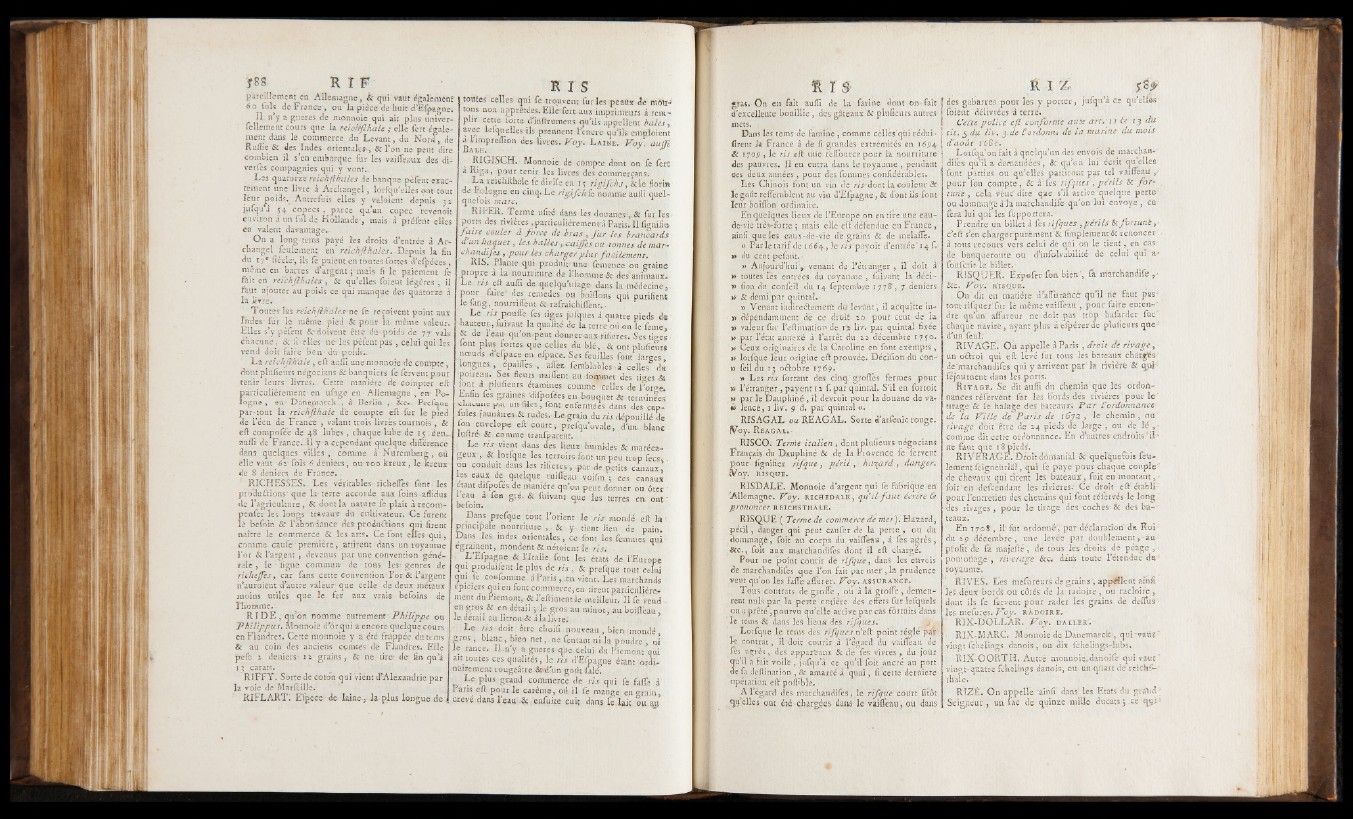 588 R I F
pareillement en Allemagne, & qui vaut également
60 sols de France, ou la pièce de huit d'Espagne.
Il n'y a gueres de monnoie qui ait plus univer-
sellement cours que la reichsthale ; elle sert égale-
ment dans le commerce du Levant, du Nord, de
Russie & des Indes orientales, & l'on ne peut dire
combien il s'en embarque sur les vaisseaux des di-
verses compagnies qui y vont.
Les quatorze reichsthales de banque pèsent exac-
tement une livre à Archangel, lorsqu'elles ont tout
leur poids. Autrefois elles y valoient depuis 52
jusqu'à 54 copecs, parce qu'un copec revenoit
environ à un sol de Hollande, mais à présent elles
en valent davantage.
On a long-tems payé les droits d'entrée à Ar-
changel seulement en reichsthales. Depuis la fin
du 17e siècle, ils se paient en toutes sortes d'espèces,
même en barres d'argent ; mais si le paiement se
fait en reichsthales, & qu'elles soient légères, il
faut ajouter au poids ce qui manque des quatorze à
la livre.
Toutes les reichsthales ne se reçoivent point aux
Indes sur le même pied & pour la même valeur.
Elles s'y pèsent & doivent être du poids de 77 vals
chacune ; & si elles ne les pèsent pas, celui qui les
vend doit faire bon du poids.
La reichsthale, est aussi une monnoie de compte,
dont plusieurs négocians & banquiers se servent pour
tenir leurs livres. Cette manière de compter est
particulièrement en usage en Allemagne, en Po-
logne, en Danemarck, à Berlin, &c. Presque
par-tout la reichsthale de compte est sur le pied
de l'écu de France, valant trois livres tournois, &
est composée de 48 lubes, chaque lube de 15 den.
aussi de France. Il y a cependant quelque différence
dans quelques villes, comme à Nuremberg, où
elle vaut 62 sols 6 deniers, ou 100 kreux, le kreux
de 8 deniers de France.
RICHESSES. Les véritables richesses sont les
productions que la terre accorde aux soins assidus
de l'agriculture, & dont la nature se plaît à recom-
penser les longs travaux du cultivateur. Ce furent
le besoin & l'abondance des productions qui firent
naître le commerce & les arts. Ce sont elles qui,
comme cause premiere, attirent dans un royaume
l'or & l'argent, devenus par une convention géné-
rale, le signe commun de tous les genres de
richesses, car sans cette convention l'or & l'argent
n'auroient d'autre valeur que celle de deux métaux
moins utiles que le fer aux vrais besoins de
l'homme.
RIDE, qu'on nomme autrement Philippe ou
Philippus. Monnoie d'or qui a encore quelque cours
en Flandres. Cette monnoie y a été frappée du tems
& au coin des anciens comtes de Flandres. Elle
pese 2 deniers 12 grains, & ne tire de fin qu'à
13 carats.
RIFFY. Sorte de coton qui vient d'Alexandrie par
la voie de Marseille.
RIFLART. Espece de laine, la plus longue de
R I S
toutes celles qui se trouvent sur les peaux de mou-
tons non apprêtées. Elle sert aux imprimeurs à rem-
plir cette sorte d'instrument qu'ils appellent bales,
avec lesquelles ils prennent l'encre qu'ils emploient
à l'impression des livres. Voy. Laine. Voy. aussi
Bale.
RIGISCH. Monnoie de compte dont on se sert
à Riga, pour tenir les livres des commerçans.
La reichsthale se divise en 15 rigischs, & le florin
de Bologne en cinq. Le rigisch se nomme aussi quel-
quefois marc.
RIPER. Terme usité dans les douanes, & sur les
ports des rivières, particulièrement à Paris. Il signifie
faire couler à force de bras, sur les brancards
d'un haquet, les balles, caisses ou tonnes de mar-
chandises, pour les charger plus facilement.
RIS. Plante qui produit une semence ou graine
propre à la nourriture de l'homme & des animaux.
Le ris est aussi de quelqu'usage dans la médecine,
pour faire des remedes ou boissons qui purifient
le sang, nourrissent & rafraîchissent.
Le ris pousse ses tiges jusques à quatre pieds de
hauteur, suivant la qualité de la terre où on le seme,
& de l'eau qu'on peut donner aux rifieres. Ses tiges
sont plus fortes que celles du blé, & ont plusieurs
nœuds d'espace en espace. Ses feuilles sont larges,
longues, épaisses, assez semblables à celles du
poireau. Ses fleurs naissent au sommet des tiges &
sont à plusieurs étamines comme celles de l'orge.
Enfin ses graines disposées en bouquet & terminées
chacune par un filet, sont enfermées dans des cap-
sules jaunâtres & rudes. Le grain du ris dépouillé de
son envelope est court, presqu'ovale, d'un blanc
lustré & comme transparent.
Le ris vient dans des lieux humides & maréca-
geux, & lorsque les terroirs sont un peu trop secs,
on conduit dans les rifieres, par de petits canaux,
les eaux de quelque ruisseau voisin ; ces canaux
étant disposés de maniére qu'on peut donner ou ôter
l'eau à son gré, & suivant que les terres en ont
besoin.
Dans presque tout l'orient le ris mondé est la
principale nourriture, & y tient lieu de pain.
Dans les indes orientales, ce sont les femmes qui
égrainent, mondent & nétoient le ris.
L'Espagne & l'Italie sont les états de l'Europe
qui produisent le plus de ris, & presque tout celui
qui se consomme à Paris, en vient. Les marchands
épiciers qui en font commerce, en tirent particulière-
ment du Piemont, & l'estiment le meilleur. Il se vend
en gros & en détail ; le gros au minot, au boisseau,
le détail au litron & à la livre.
Le ris doit être choisi nouveau, bien mondé,
gros, blanc, bien net, ne sentant ni la poudre, ni
le rance. Il n'y a gueres que celui du Piemont qui
ait toutes ces qualités, le ris d'Espagne étant ordi-
nairement rougeâtre & d'un goût salé.
Le plus grand commerce de ris qui se fasse à
Paris est pour le carême, où il se mange en grain,
crevé dans l'eau & ensuite cuit dans le lait ou au
R I S
gras. On en fait aussi de la farine dont on fait
d'excellente bouillie, des gâteaux & plusieurs autres
mets.
Dans les tems de famine, comme celles qui rédui-
sirent la France à de si grandes extrémités en 1694
& 1709, le ris est une ressource pour la nourriture
des pauvres. Il en entra dans le royaume, pendant
ces deux années, pour des sommes considérables.
Les Chinois font un vin de ris dont la couleur &
le goût ressemblent au vin d'Espagne, & dont ils font
leur boisson ordinaire.
En quelques lieux de l'Europe on en tire une eau-
de-vie très-forte ; mais elle est défendue en France,
ainsi que les eaux-de-vie de grains & de melasse.
» Par le tarif de 1664, le ris payoit d'entrée 14 s.
» du cent pesant.
» Aujourd'hui, venant de l'étranger, il doit à
» toutes les entrées du royaume, suivant la déci-
» sion du conseil du 14 septembre 1778, 7 deniers
» & demi par quintal.
» Venant indirectement du levant, il acquitte in-
» dépendamment de ce droit 20 pour cent de la
» valeur sur l'estimation de 12 liv. par quintal fixée
» par l'état annexé à l'arrêt du 22 décembre 1750.
» Ceux originaires de la Caroline en sont exempts,
» lorsque leur origine est prouvée. Décision du con-
» seil du 13 octobre 1769.
» Les ris sortant des cinq grosses fermes pour
» l'étranger, payent 12 s. par quintal. S'il en sortoit
» par le Dauphiné, il devroit pour la douane de va-
» lence, 1 liv. 9 d. par quintal ».
RISAGAL ou REAGAL. Sorte d'arsenic rouge.
Voy. Réagal.
RISCO. Terme italien, dont plusieurs négocians
Français du Dauphiné & de la Provence se servent
pour signifier risque, péril, hazard, danger.
Voy. risque.
RISDALE. Monnoie d'argent qui se fabrique en
Allemagne. Voy. richedale, qu'il faut écrire &
prononcer reichsthale.
RISQUE (Terme de commerce de mer). Hazard,
péril, danger qui peut causer de la perte, ou du
dommage, soit au corps du vaisseau, à ses agrès,
&c., soit aux marchandises dont il est chargé.
Pour ne point courir de risque, dans les envois
de marchandises que l'on fait par mer, la prudence
veut qu'on les fasse assurer. Voy. assurance.
Tous contrats de grosse, ou à la grosse, demeu-
rent nuls par la perte entière des effets sur lesquels
on a prêté, pourvu qu'elle arrive par cas fortuits dans
le tems & dans les lieux des risques.
Lorsque le tems des risques n'est point réglé par
le contrat, il doit courir à l'égard du vaisseau de
ses agrès, des apparaux & de ses vivres, du jour
qu'il a fait voile, jusqu'à ce qu'il soit ancré au port
de sa destination, & amarré à quai, si cette derniere
opération est possible.
A l'égard des marchandises, le risque court sitôt
qu'elles ont été chargées dans le vaisseau, ou dans
R I Z 589
des gabarres pour les y porter, jusqu'à ce qu'elles
soient délivrées à terre.
Cette police est conforme aux art. 11 & 13 du
tit. 5 du liv. 3 de l'ordonn. de la marine du mois
d'août 1681.
Lorsqu'on fait à quelqu'un des envois de marchan-
dises qu'il a demandées, & qu'on lui écrit qu'elles
sont parties ou qu'elles partiront par tel vaisseau,
pour son compte, & à ses risques, périls & for-
tune, cela veut dire que s'il arrive quelque perte
ou dommage à la marchandise qu'on lui envoye, ce
sera lui qui les supportera.
Prendre un billet à ses risques, périls & fortune,
c'est s'en charger purement & simplement & renoncer
à tous recours vers celui de qui on le tient, en cas
de banqueroute ou d'insolvabilité de celui qui a
souscrit le billet.
RISQUER. Exposer son bien, sa marchandise,
&c. Voy. risque.
On dit en matière d'assurance qu'il ne faut pas
tout risquer sur le même vaisseau, pour faire enten-
dre qu'un assureur ne doit pas trop hasarder sur
chaque navire, ayant plus à espérer de plusieurs que
d'un seul.
RIVAGE. On appelle à Paris, droit de rivage,
un octroi qui est levé sur tous les bateaux chargés
de marchandises qui y arrivent par la rivière & qui
séjournent dans les ports.
Rivage. Se dit aussi du chemin que les ordon-
nances réservent sur les bords des rivières pour le
tirage & le halage des bateaux. Par l'ordonnance
de la Ville de Paris de 1672, le chemin, ou
rivage doit être de 24 pieds de large, ou de lé,
comme dit cette ordonnance. En d'autres endroits il
ne faut que 18 pieds.
RIVERAGE. Droit domanial & quelquefois seu-
lement seigneurial, qui se paye pour chaque couple
de chevaux qui tirent les bateaux, soit en montant,
soit en descendant les rivieres. Ce droit est établi
pour l'entretien des chemins qui sont réservés le long
des rivages, pour le tirage des coches & des ba-
teaux.
En 1708, il fut ordonné, par déclaration du Roi
du 29 décembre, une levée par doublement, au
profit de sa majesté, de tous les droits de péage,
pontonage, riverage &c. dans toute l'étendue du
royaume.
RIVES. Les mesureurs de grains, appellent ainsi
les deux bords ou côtés de la radoire, ou racloire,
dont ils se servent pour rader les grains de dessus
les mesures. Voy. radoire.
RIX-DOLLAR. Voy. daller.
RIX-MARC. Monnoie de Danemarck, qui vaut
vingt schelings danois, ou dix schelings-lubs.
RIX-OORTH. Autre monnoie danoise qui vaut
vingt-quatre schelings danois, ou un quart de reichs-
thale.
RIZE. On appelle ainsi dans les Etats du grand
Seigneur, un sac de quinze mille ducats ; ce qui